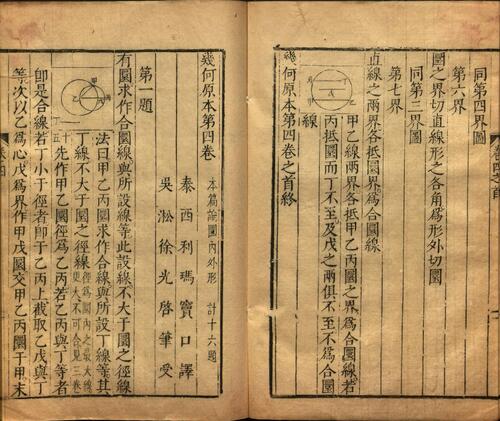 同第四界圖
第六界
圜之界切直線形之各角爲形外切圜
同第三界圖
第七界
直線之兩界各抵圜界爲合圜線
甲乙線兩界各抵甲乙丙圜之界爲合圜線若
丙抵圜而丁不至及戊之兩俱不至不爲合圜
線
幾何原本第四卷之首終
幾何原本第四卷
本篇論圜內外形 計十六題
泰西利瑪竇口譯
吳淞徐光啓筆受
第一題
有圜求作合圜線與所設線等此設線不大于圜之徑線
法曰甲乙丙圜求作合線與所設丁線等其
丁線不大于圜之徑線
徑爲圜內之最大線
更大不可合見三卷
十五
先作甲乙圜徑爲乙丙若乙丙與丁等者
即是合線若丁小于徑者即于乙丙上截取乙戊與丁
等次以乙爲心戊爲界作甲戊圜交甲乙丙圜于甲末